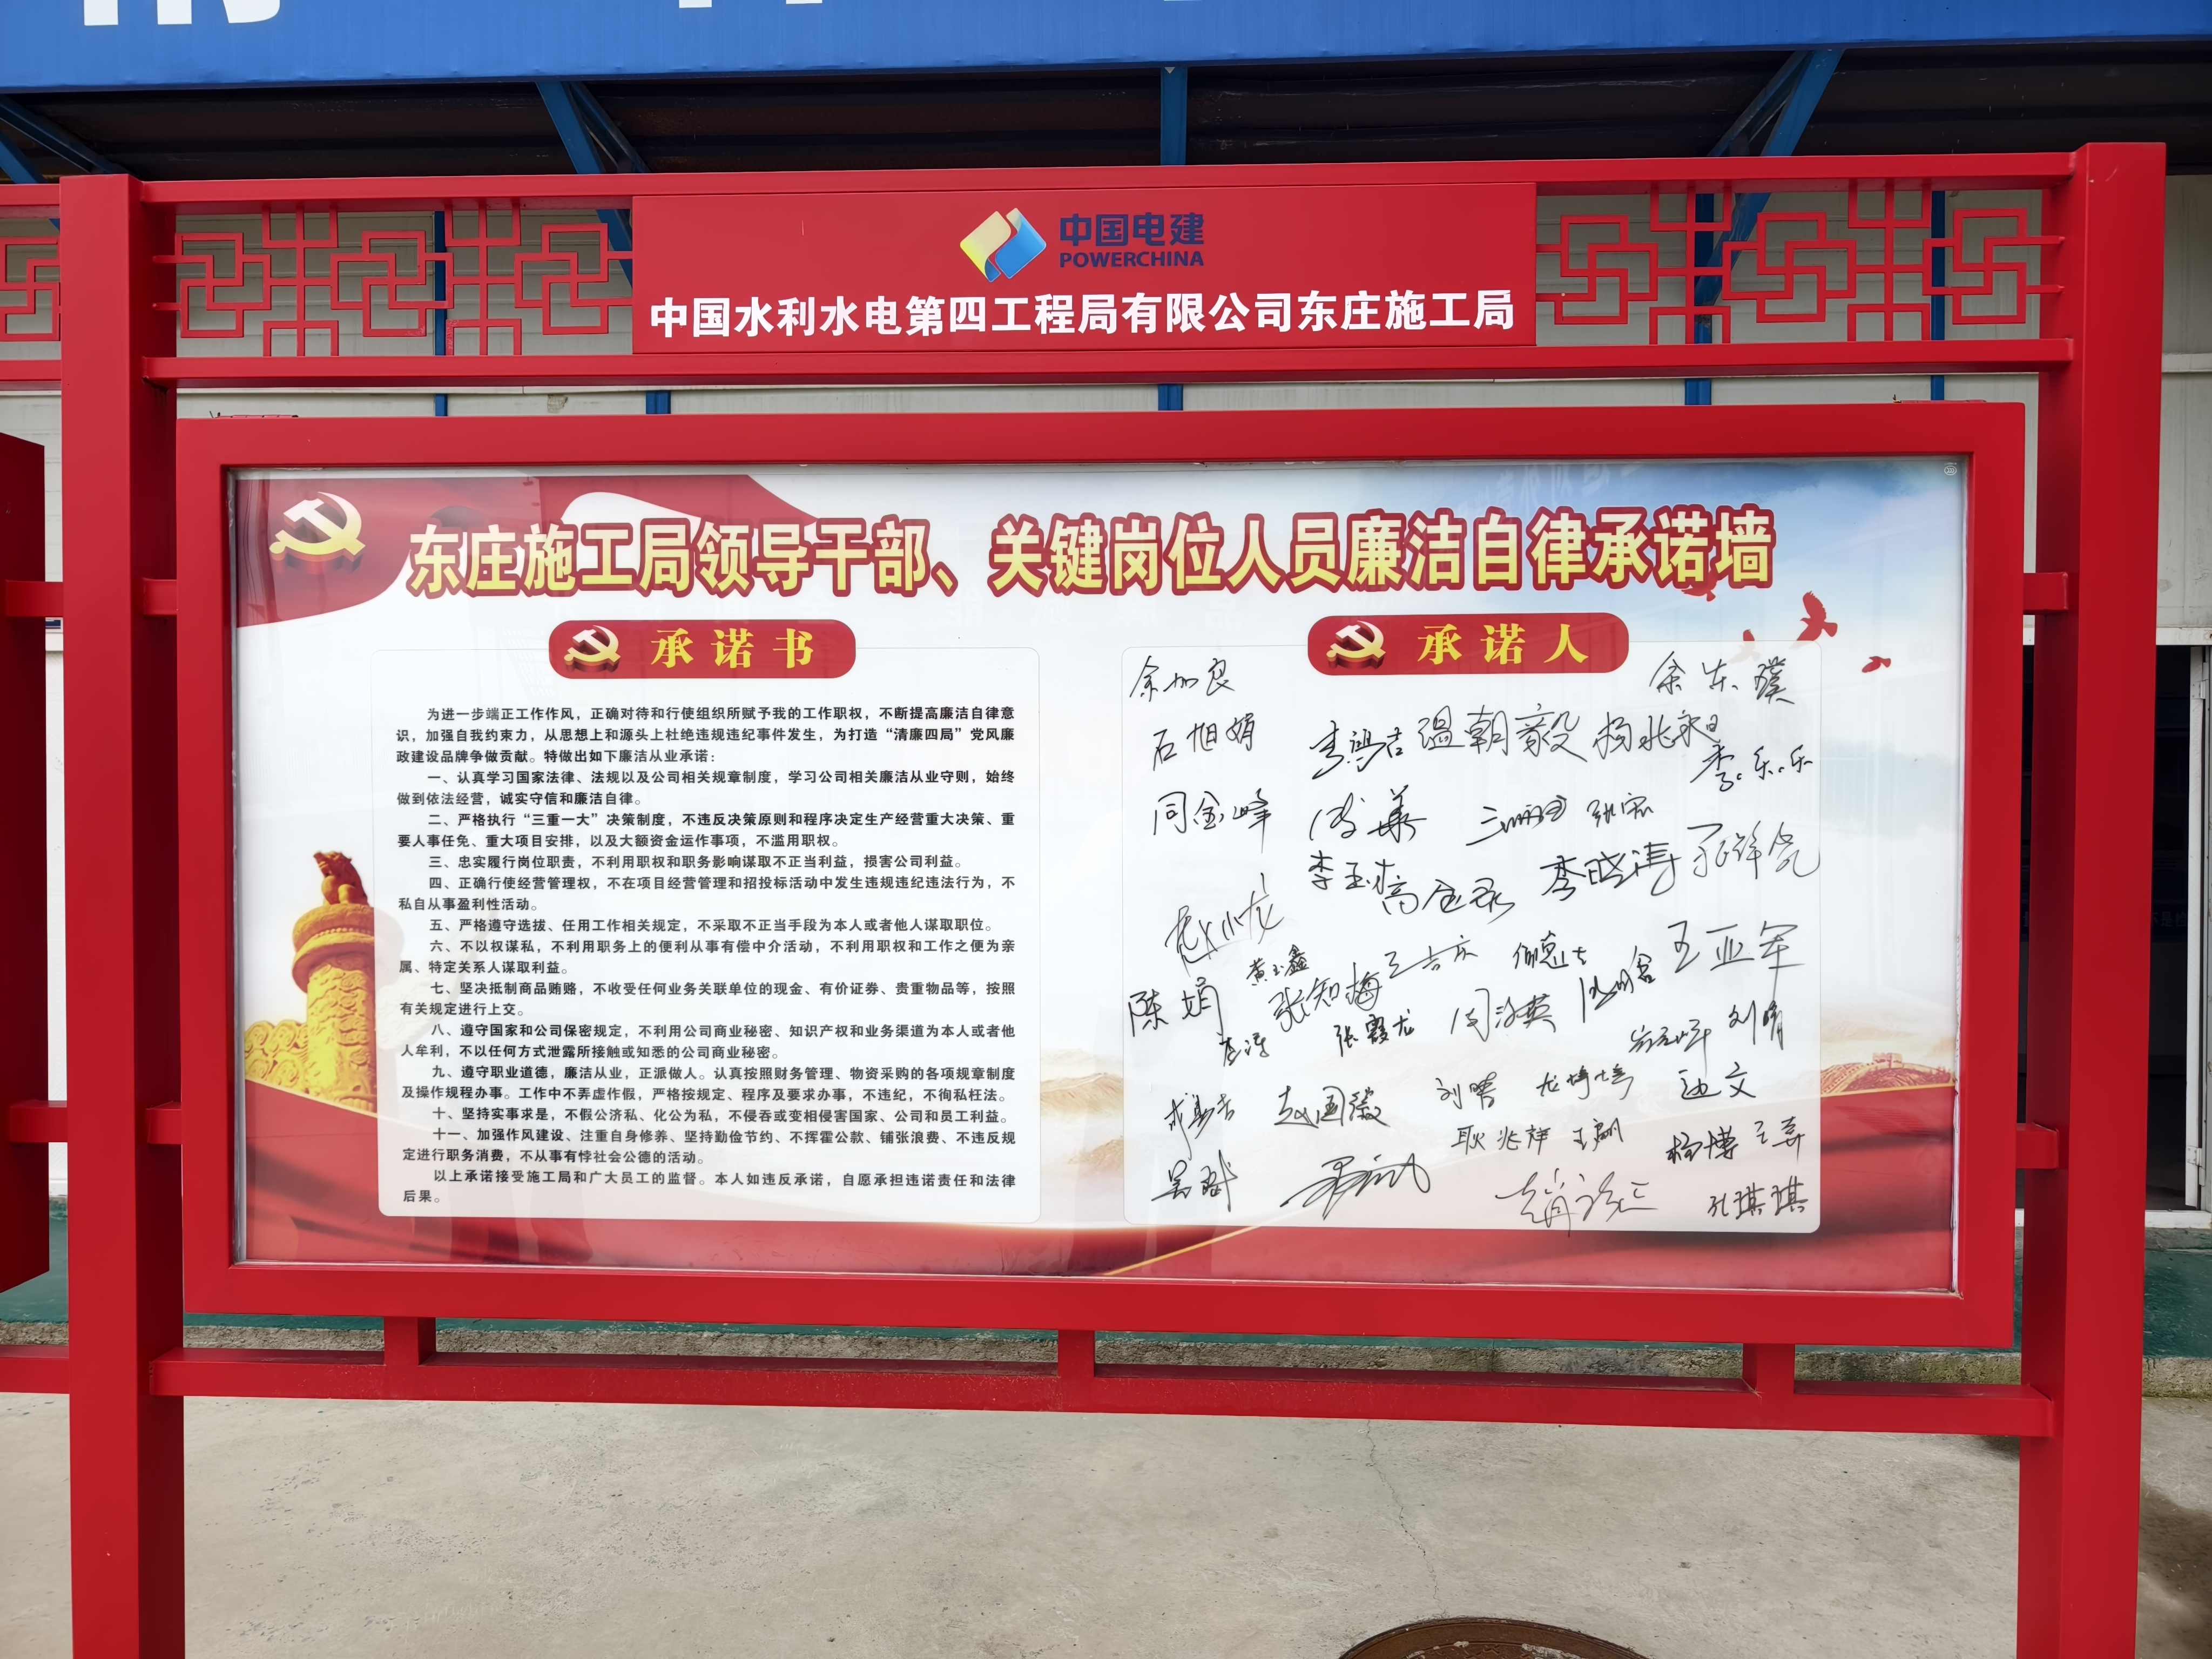 中国电建
POWERCHINA
中国水利水电第四工程局有限公司东庄施工局
东庄施工局领导干部、关键岗位人员廉洁自律承诺墙
承诺书
为进一步端正工作作风，正确对待和行使组织所赋予我的工作职权，不断提高廉洁自律意
识，加强自我约束力，从思想上和源头上杜绝违规违纪事件发生，为打造“清廉四局”党风廉
政建设品牌争做贡献。特做出如下廉洁从业承诺：
一、认真学习国家法律、法规以及公司相关规章制度，学习公司相关廉洁从业守则，始终
做到依法经营，诚实守信和廉洁自律。
二、严格执行“三重一大”决策制度，不违反决策原则和程序决定生产经营重大决策、重
要人事任免、重大项目安排，以及大额资金运作事项，不滥用职权。
三、忠实履行岗位职责，不利用职权和职务影响谋取不正当利益，损害公司利益。
四、正确行使经营管理权，不在项目经营管理和招投标活动中发生违规违纪违法行为，不
私自从事盈利性活动。
五、严格遵守选拔、任用工作相关规定，不采取不正当手段为本人或者他人谋取职位。
六、不以权谋私，不利用职务上的便利从事有偿中介活动，不利用职权和工作之便为亲
属、特定关系人谋取利益。
七、坚决抵制商品贿赂，不收受任何业务关联单位的现金、有价证券、贵重物品等，按照
有关规定进行上交。
八、遵守国家和公司保密规定，不利用公司商业秘密、知识产权和业务渠道为本人或者他
人牟利，不以任何方式泄露所接触或知悉的公司商业秘密。
九、遵守职业道德，廉洁从业，正派做人。认真按照财务管理、物资采购的各项规章制度
及操作规程办事。工作中不弄虚作假，严格按规定、程序及要求办事，不违纪，不徇私枉法。
十、坚持实事求是，不假公济私、化公为私，不侵吞或变相侵害国家、公司和员工利益。
十一、加强作风建设、注重自身修养、坚持勤俭节约、不挥霍公款、铺张浪费、不违反规
定进行职务消费，不从事有悖社会公德的活动。
以上承诺接受施工局和广大员工的监督。本人如违反承诺，自愿承担违诺责任和法律
后果。
承诺人
余加良
余东璞
石旭娟
温朝毅
李乐乐
同金峰
李晓涛
黄玉鑫
张知梅
王亚军
陈娟
张霞龙
李涛
赵国徽
耿兆祥
杨博
孔琪琪